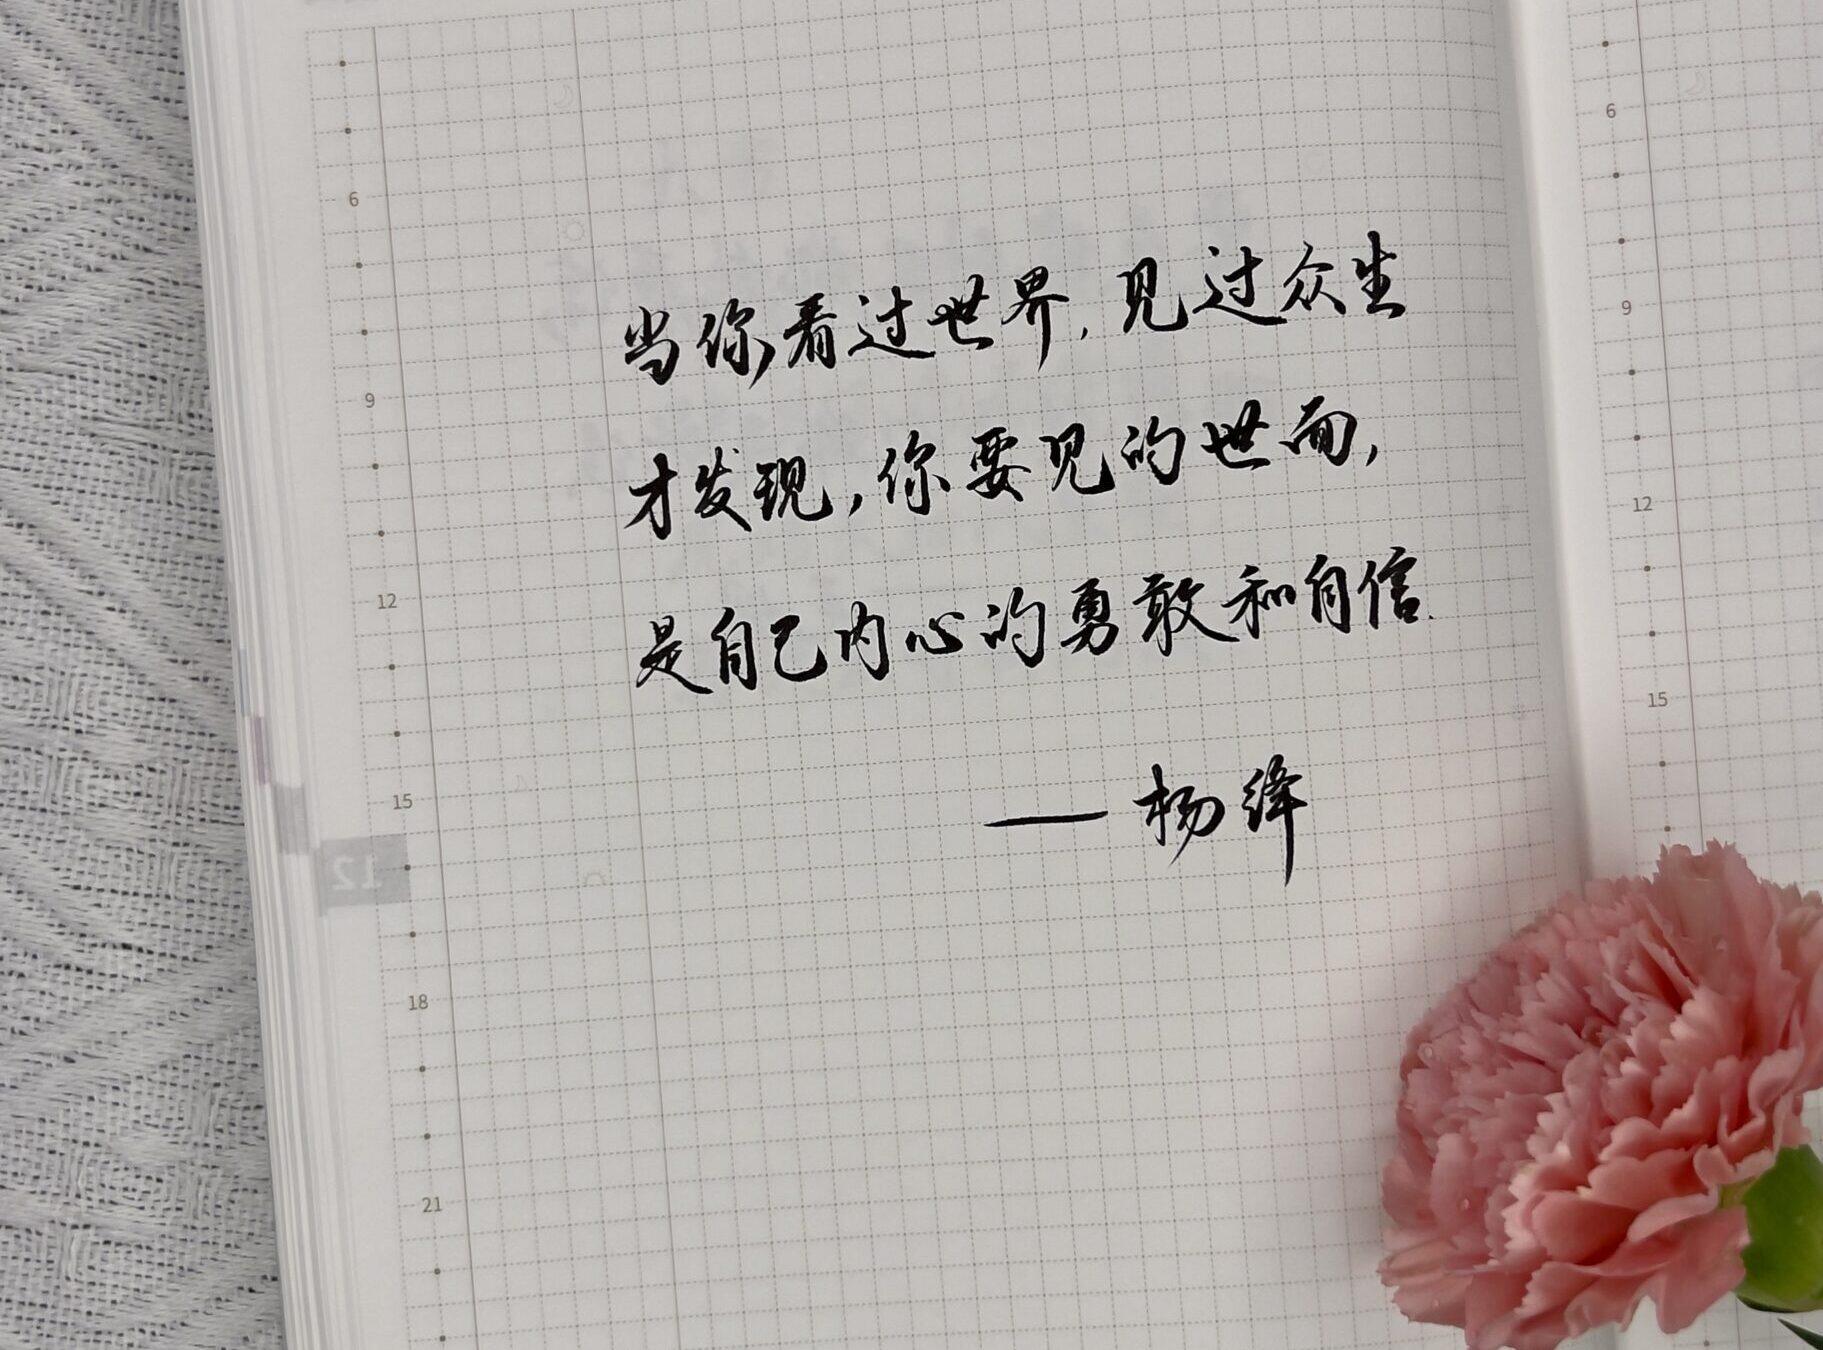 当你看过世界,见过众生
才发现,你要见的世面,
是自己内心的勇敢和自信.
——杨绛
6
9
12
15
12
18
21
6
9
12
15